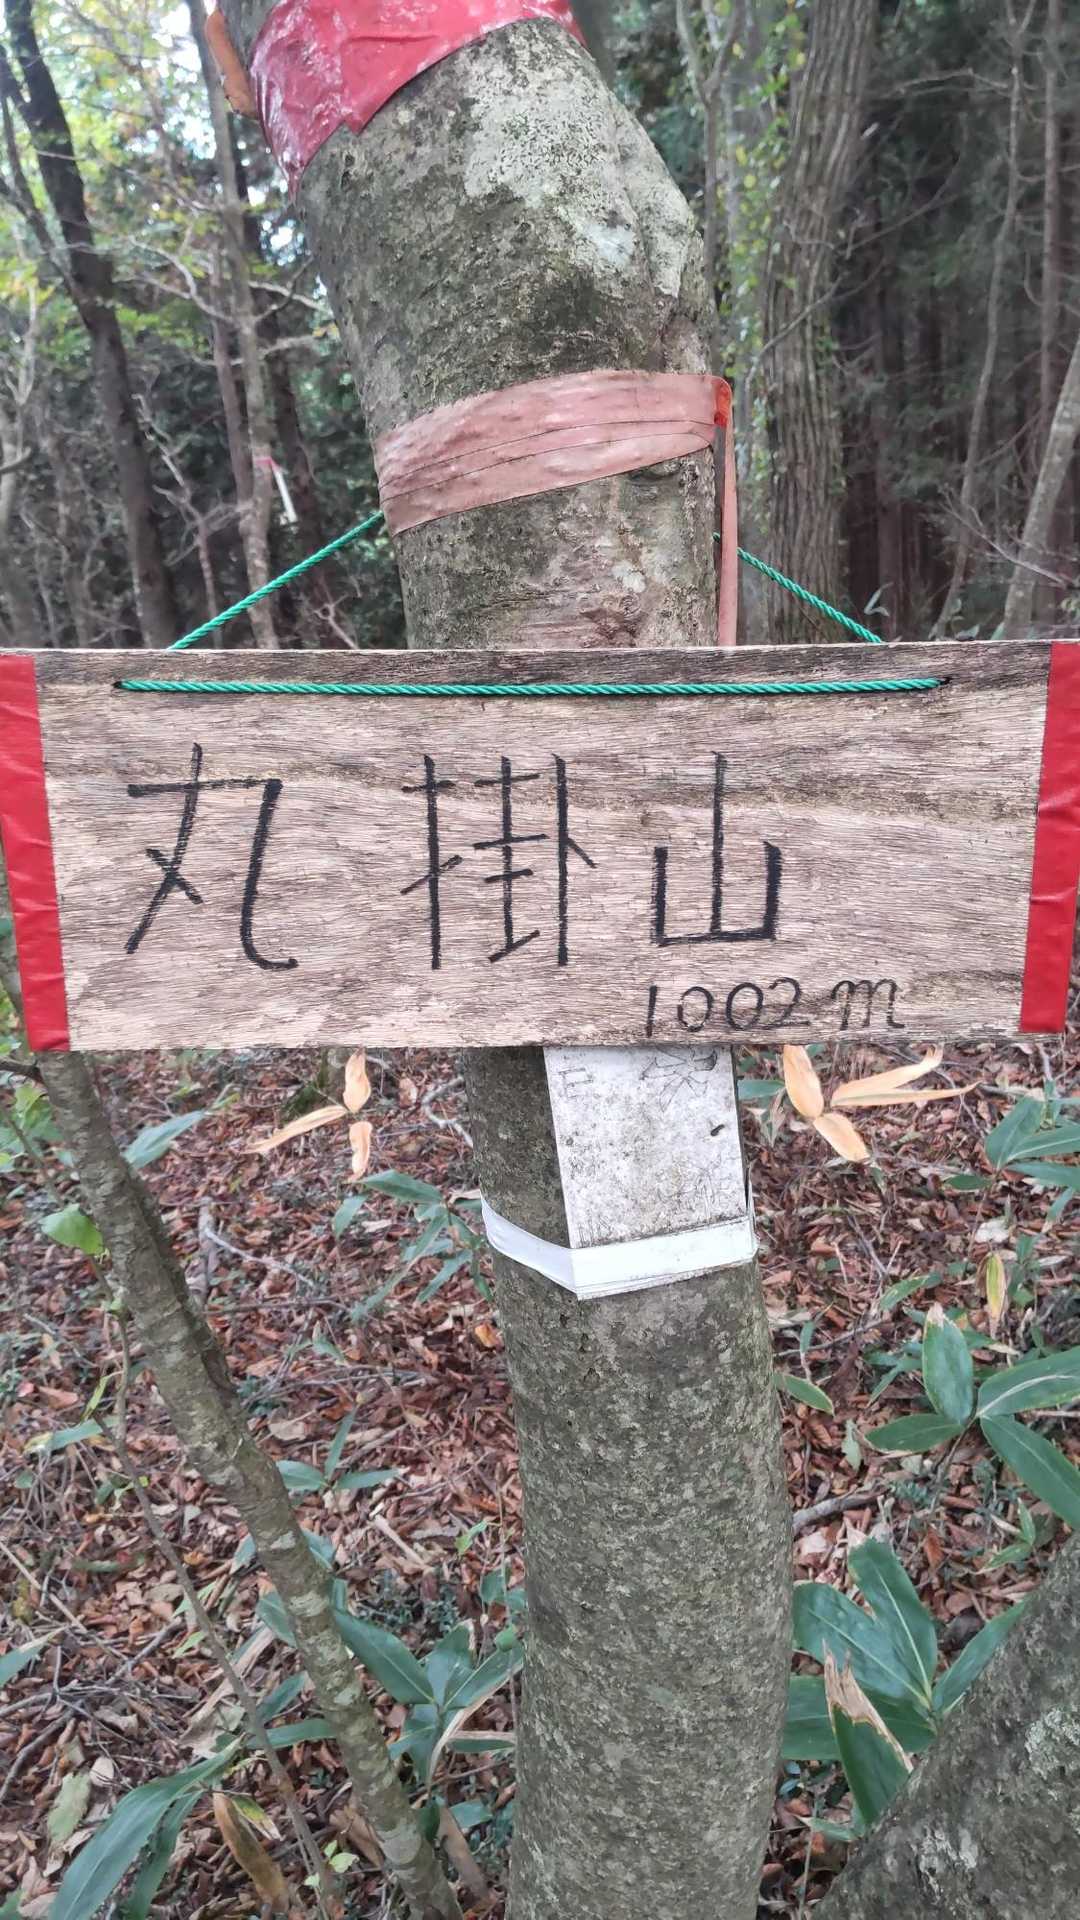 丸掛山
1002m